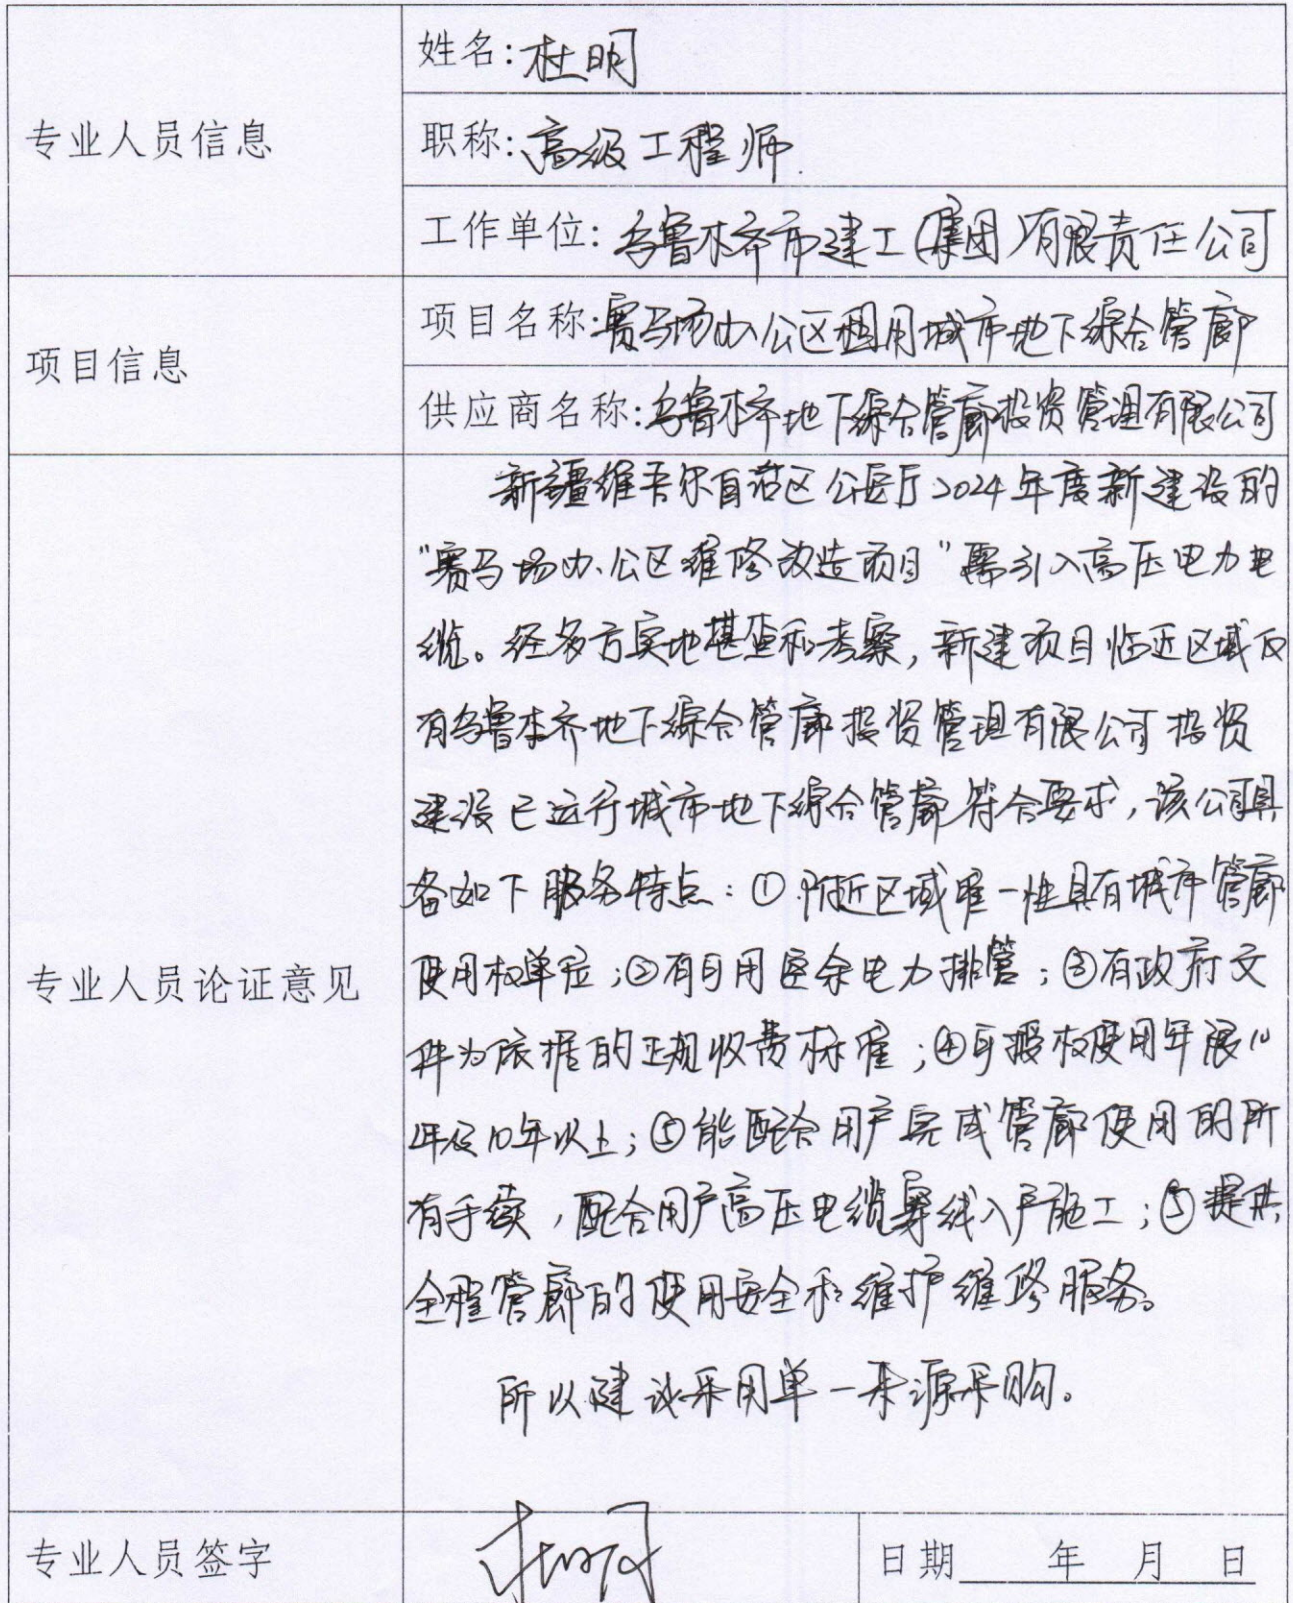 专业人员信息
姓名:杜明
职称:高级工程师
工作单位:乌鲁木齐市建工(集团)有限责任公司
项目信息
项目名称:赛马场办公区租用城市地下综合管廊
供应商名称:乌鲁木齐地下综合管廊投资管理有限公司
专业人员论证意见
新疆维吾尔自治区公安厅2024年度新建设的
"赛马场办公区维修改造项目"需引入高压电力电
缆。经多方实地堪查和考察,新建项目临近区域仅
有乌鲁木齐地下综合管廊投资管理有限公司投资
建设已运行城市地下综合管廊符合要求,该公司具
备如下服务特点:①附近区域唯一性具有城市管廊
使用权单位;②有可用空余电力排管;③有政府文
件为依据的正规收费标准;④可授权使用年限10
年及10年以上;⑤能配合用户完成管廊使用的所
有手续,配合用户高压电缆穿线入户施工;⑤提供
全程管廊的使用安全和维护维修服务。
所以建议采用单一来源采购。
专业人员签字
杜明
日期 年 月 日